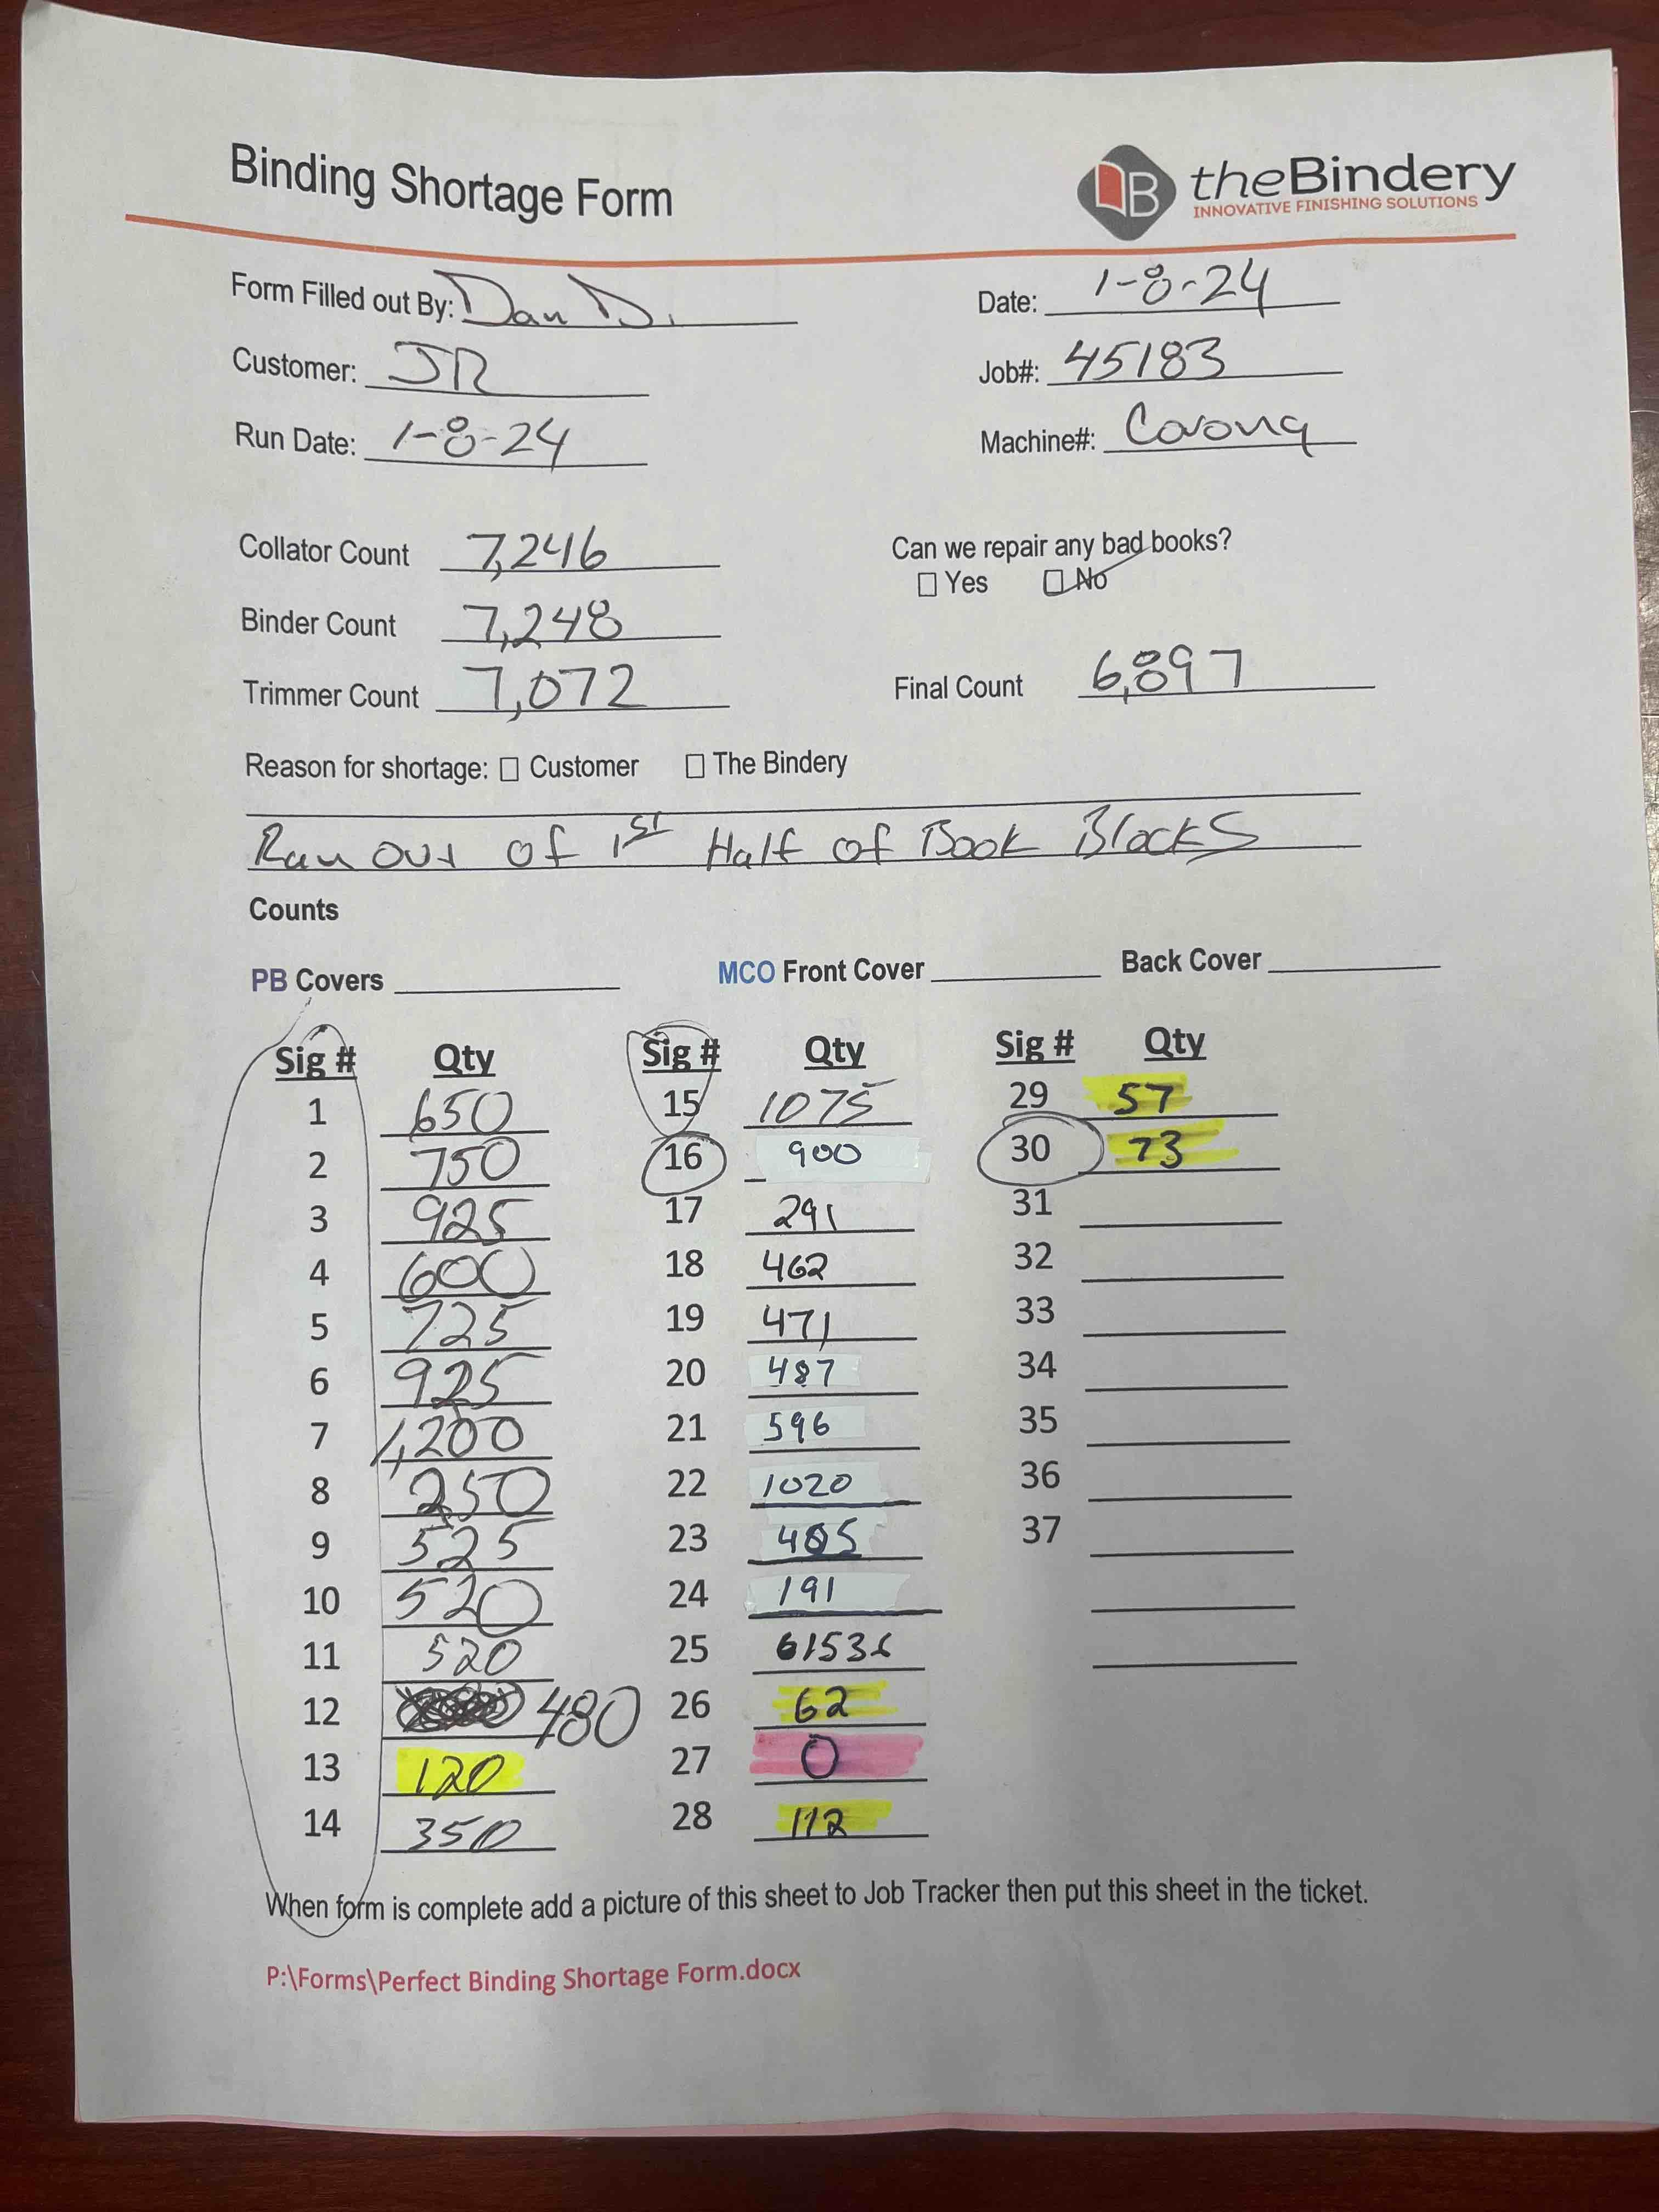 Binding Shortage Form
B theBindery
INNOVATIVE FINISHING SOLUTIONS
Form Filled out By: Dan D. Date: 1-8-24
Customer: JR Job#: 45183
Run Date: 1-8-24 Machine#: Corona
Collator Count 7,246 Can we repair any bad books?
☐ Yes ☐ No
Binder Count 7,248
Trimmer Count 7,072 Final Count 6,897
Reason for shortage: ☐ Customer ☐ The Bindery
Ran out of 1st Half of Book Blocks
Counts
PB Covers MCO Front Cover Back Cover
Sig # Qty Sig # Qty Sig # Qty
1 650 15 1075 29 57
2 750 16 900 30 73
3 925 17 291 31
4 600 18 462 32
5 725 19 471 33
6 925 20 487 34
7 1,200 21 596 35
8 250 22 1020 36
9 525 23 37
10 520 24 191
11 520 25
12 480 26 62
13 120 27 0
14 350 28 112
When form is complete add a picture of this sheet to Job Tracker then put this sheet in the ticket.
P:\Forms\Perfect Binding Shortage Form.docx